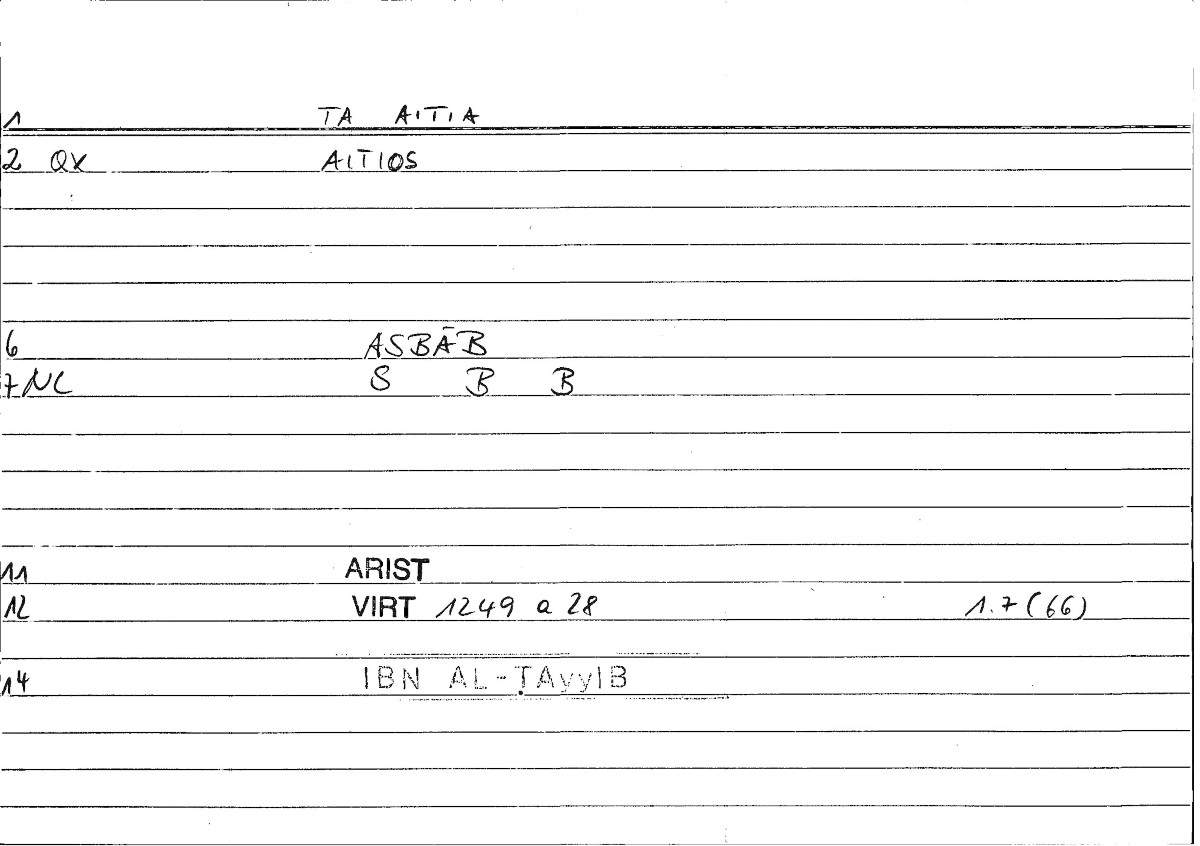 1 TA AITIA
2 QX AITIOS
6 ASBĀB
7 NC S B B
11 ARIST
12 VIRT 1249 a 28 1.7 (66)
14 IBN AL-ṬAyyIB